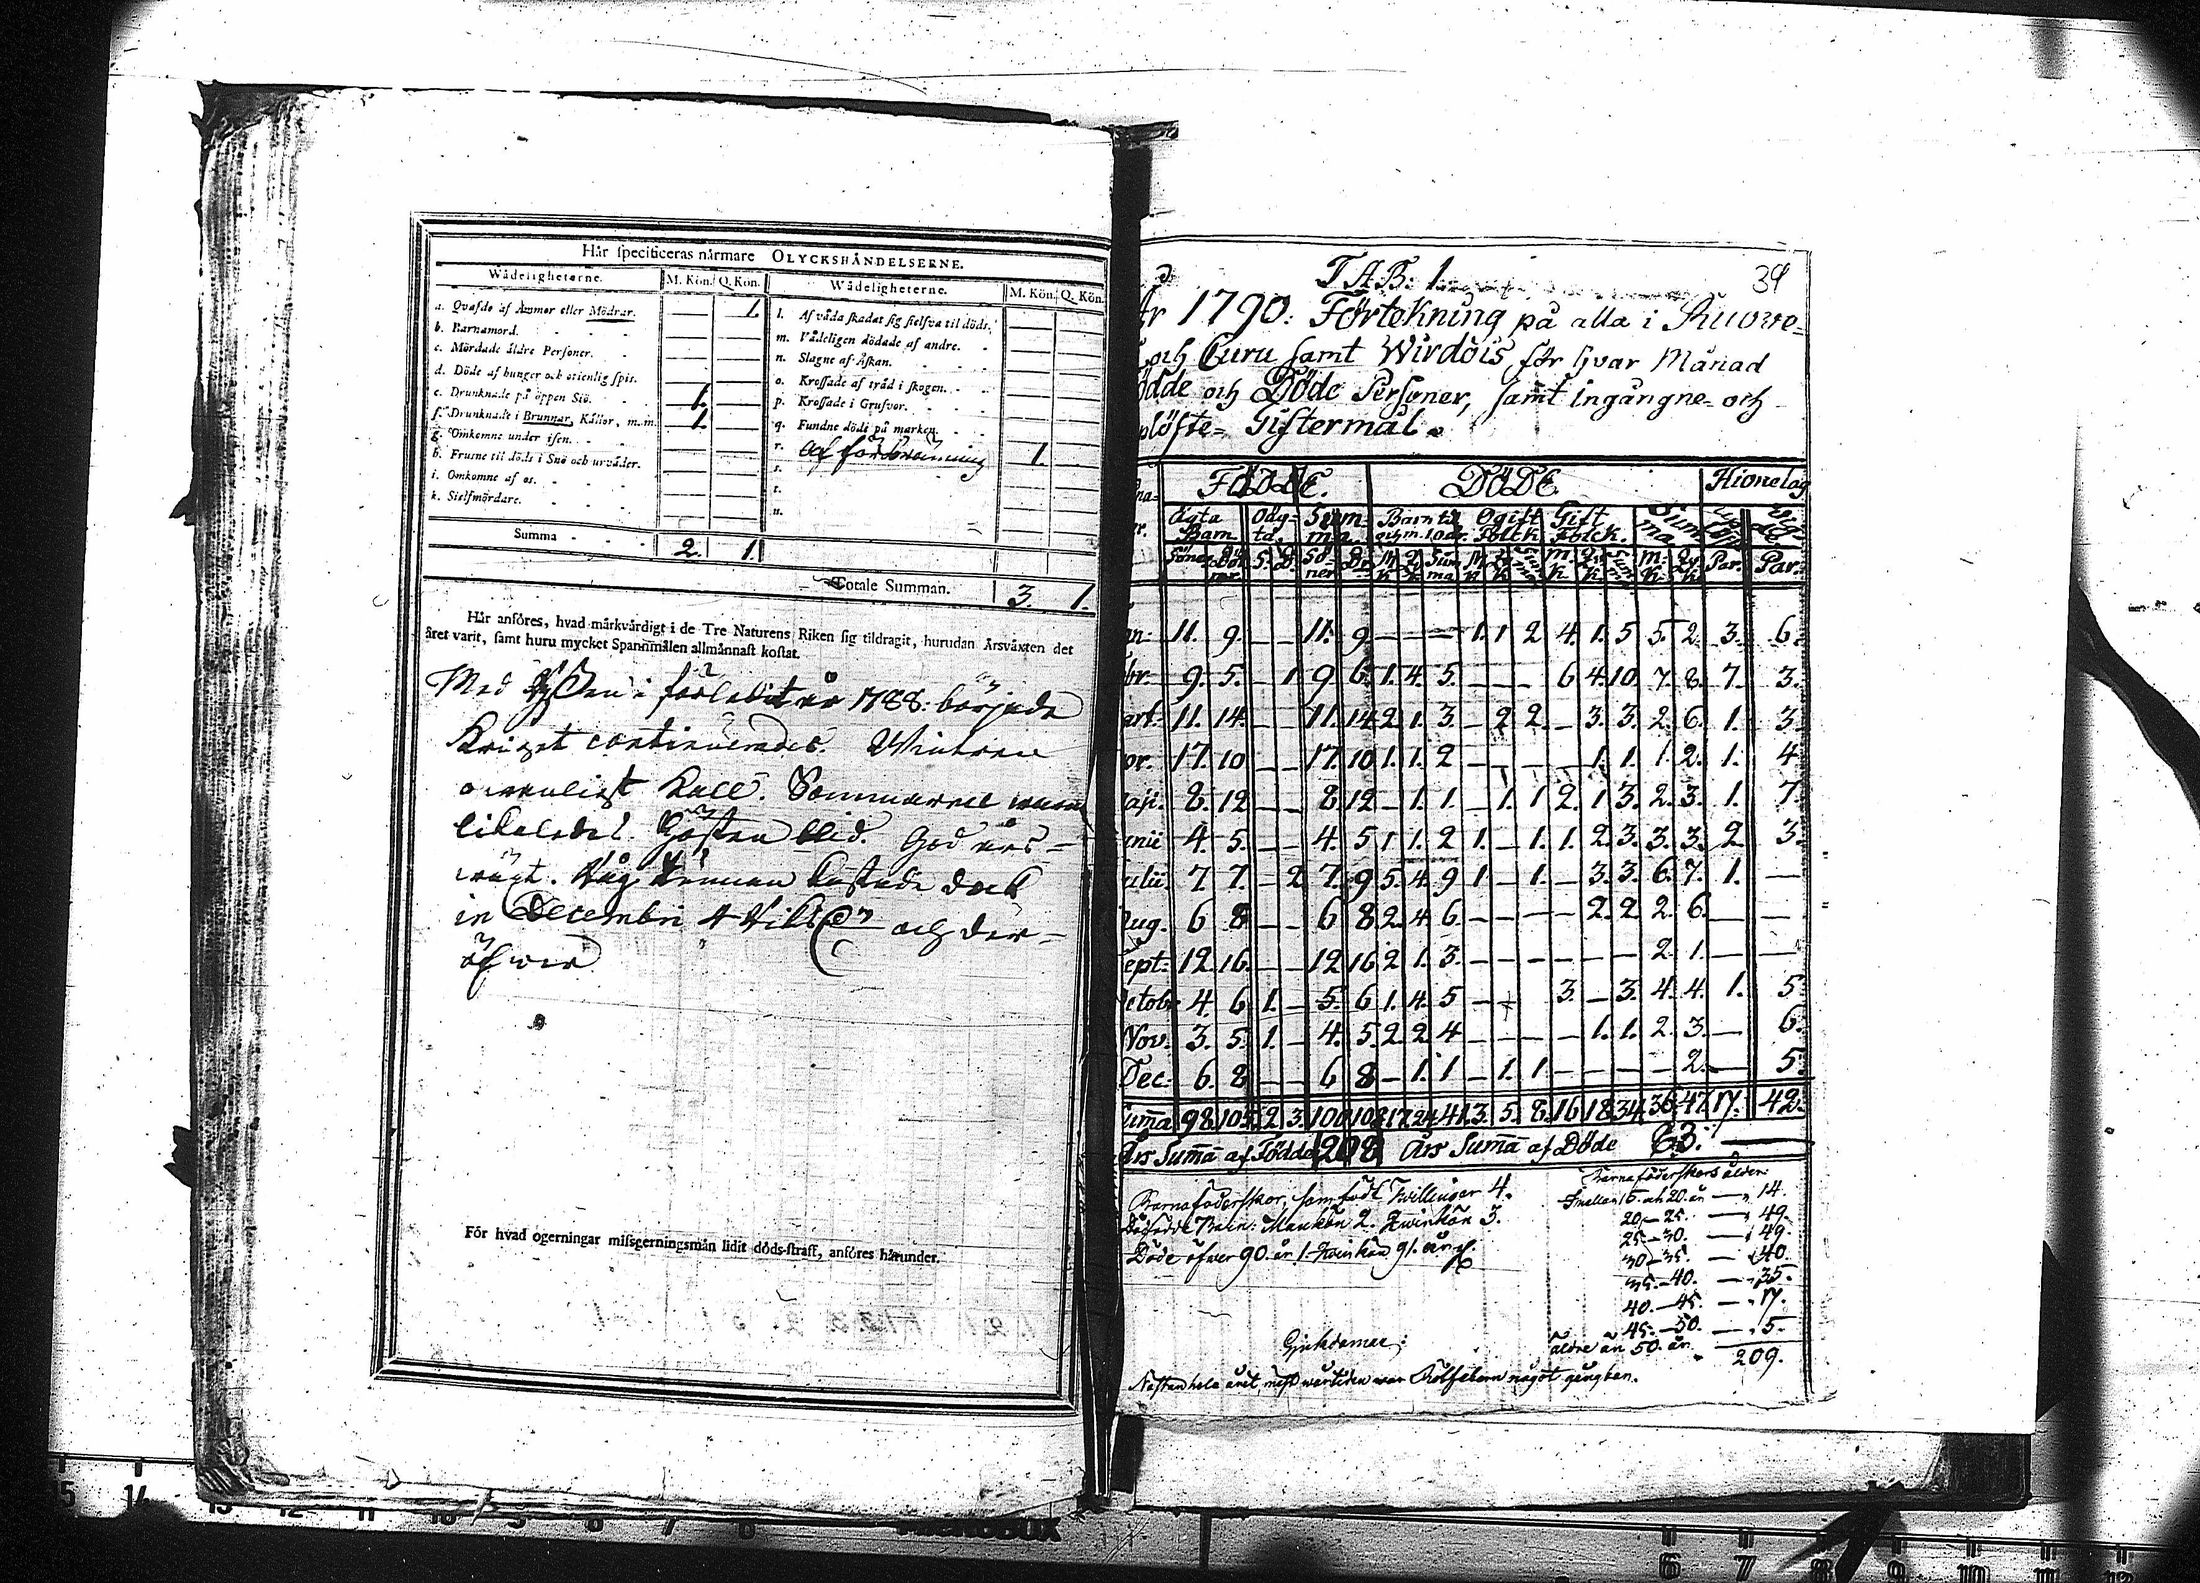 Här specificeras närmare OLYCKSHÄNDELSERNE.
Wådeligheterne. M. Kön. Q. Kön. Wådeligheterne. M. Kön. Q. Kön.
a. Qvafde af Ammor eller Mödrar. — 1. l. Af våda skadat sig sielfva til döds. — —
b. Barnamord. — — m. Vådeligen dödade af andre. — —
c. Mördade äldre Personer. — — n. Slagne af Åskan. — —
d. Döde af hunger och otienlig spis. — — o. Krossade af träd i skogen. — —
e. Drunknade på öppen Siö. 1. — p. Krossade i Grufvor. — —
f. Drunknade i Brunnar, Källor, m.m. 1. — q. Fundne döde på marken. — —
g. Omkomne under isen. — — r. af förbränning 1.
h. Frusne til döds i Snö och urväder. — — s. — —
i. Omkomne af os. — — t. — —
k. Sielfmördare. — — u. — —
Summa 2. 1.
Totale Summan. 3. 1.
Här anföres, hvad märkvärdigt i de Tre Naturens Riken sig tildragit, hurudan Årsväxten det
året varit, samt huru mycket Spannmålen allmännast kostat.
Med i förledit år 1788. började
Kriget continuerades. Winteren
kall. Sommaren
likaledes. Hösten blid. God års-
wäxt. Råg Tunnan kostade dock
in Decembri 4 och der-
öfwer
För hvad ogerningar missgerningsmän lidit döds-straff, anföres härunder.
39
TAB: 1.
År 1790. Förtekning på alla i Ruowe-
och Curu samt Wirdois för hvar Månad
ödde och Döde Personer, samt ingångne- och
plöste- Giftermål.
FÖDDE. DÖDE. Hionelag
Ägta Barn Oäg-ta. Sum-ma. Barn til och m. 10 år. Ogift Folck Gift Folck. Sum ma
Söner Dött rar. S. D. Sö-ner D. M K Q K Sum ma M K Q K Sum ma M. K. Q K. Sum m. M. K. Q. K. Par. Par.
an- 11. 9. — — 11. 9 — — — 1. 1 2 4. 1. 5 5. 2. 3. 6.
br. 9. 5. — 1 9 6. 1. 4. 5. — — — 6 4. 10. 7. 8. 7. 3.
art. 11. 14. — — 11. 14 2 1. 3. — 2 2. — 3. 3. 2. 6. 1. 3.
pr. 17. 10 — — 17. 10 1. 1. 2 — — — — 1. 1. 1. 2. 1. 4
aji. 8. 12 — — 8. 12 — 1. 1. — 1. 1 2. 1 3. 2. 3. 1. 7.
unii 4. 5. — — 4. 5 1 1. 2 1. — 1. 1. 2. 3. 3. 3. 2 3.
ulii 7 7. — 2 7. 9 5. 4. 9 1. — 1. — 3. 3. 6. 7. 1. —
ug. 6 8 — — 6 8 2. 4. 6 — — — — 2. 2. 2. 6. — —
ept: 12. 16. — — 12 16 2 1. 3. — — — — — — 2. 1. — —
ctob: 4. 6 1. — 5. 6 1. 4. 5 — — 3. — 3. 4. 4. 1. 5
Nov. 3. 5. 1. — 4. 5. 2 2 4 — — — — 1. 1. 2. 3. — 6.
Dec. 6. 8 — — 6 8 — 1. 1 — 1. 1 — — — — 2. — 5.
uma 98. 105. 2 3. 100 108. 17. 24. 41. 3. 5. 8. 16. 18. 34. 36. 47. 17. 42.
Års Suma af Födde 208 Års Suma af Döde 83.
Barnaföderskor, som födt Twillingar 4.
Dödfödde Barn: Mankön 2. Qwinkön 3.
Döde öfver 90. år 1. Qwinkön 91. år gl.
Barnaföderskors ålder:
Emellan 15. och 20. år — 14.
20.—25. — 49.
25.—30. — 49.
30—35. — 40.
35.—40. — 35.
40.—45. — 17.
45.—50. — 5.
äldre än 50. år.
209.
Siukdomar:
Nästan hela året mest wårtiden war Rötfebern något gängken.